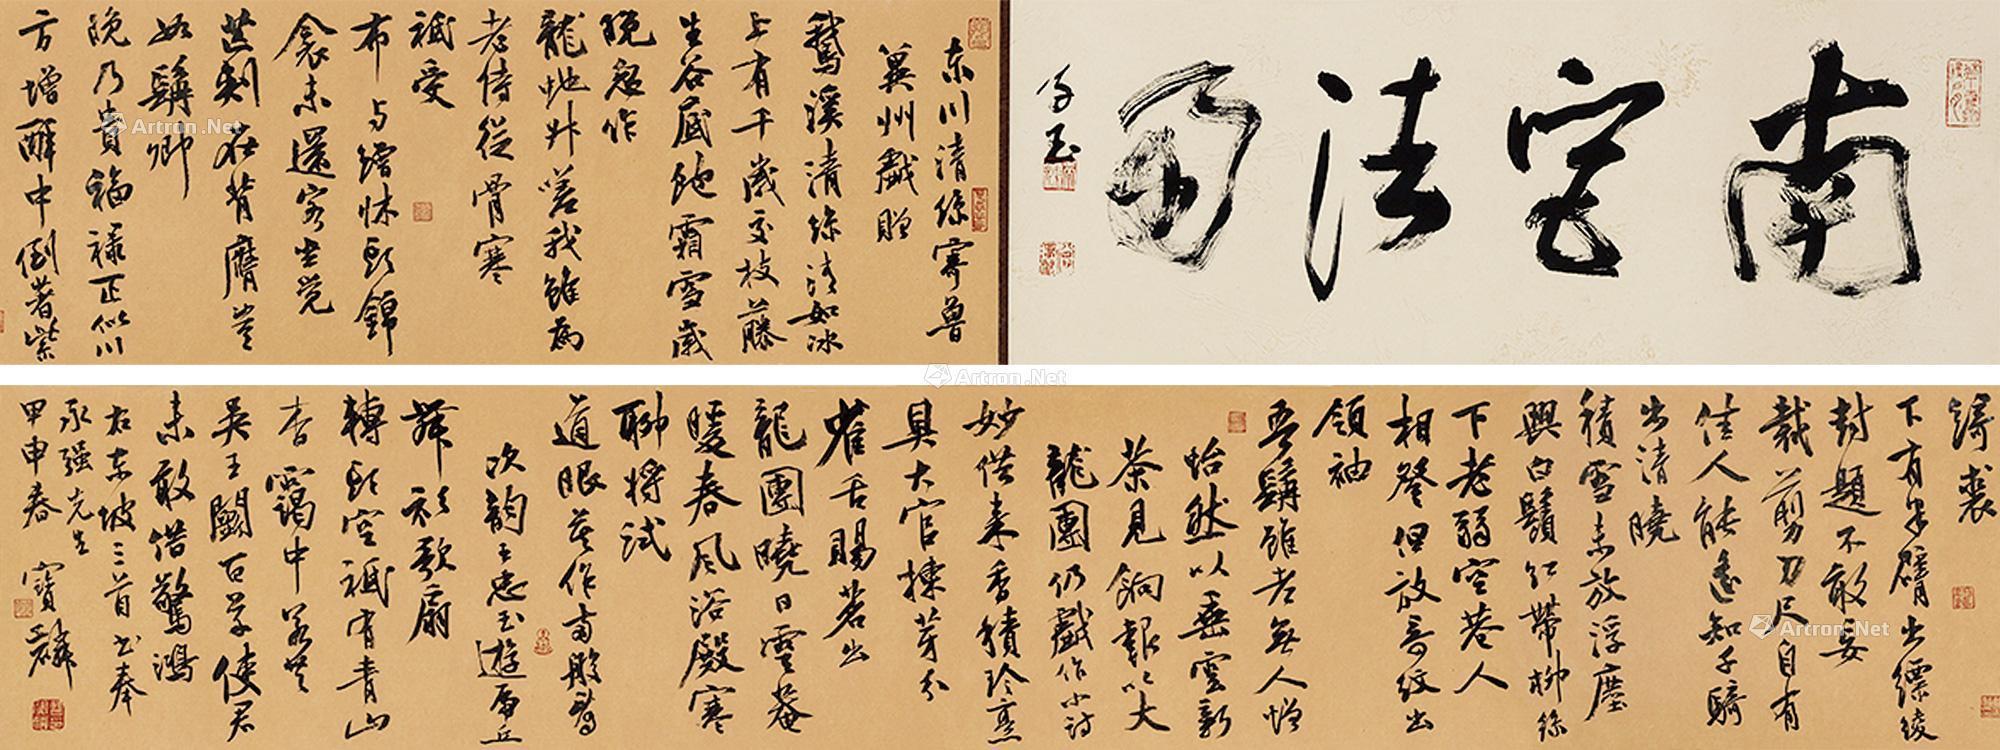 南宮法
東川清絲寄魯
冀州戲贈
鵝溪清絲清如冰
上有千歲交枝藤
生谷底飽霜雪歲
晚忽作
龍蛇升嗟我雖為
老侍從骨寒
祗受
布與繒牀頭錦
衾未還客坐覺
芒刺在背膺豈
如髯卿
晚乃貴福祿正似川
方增醉中倒著紫
綺裘
下有半臂出縹綾
封題不敢妄
裁剪刀尺自有
佳人能遙知千騎
出清曉
積雪未放浮塵
興白鬚紅帶柳絲
下老弱空巷人
相登但放奇紋出
領袖
吾髯雖老無人憎
怡然以垂雲新
茶見餉報以大
龍團仍戲作小詩
妙供來香積珍烹
具大官揀芽分
雀舌賜茗出
龍團曉日雲菴
暖春風浴殿寒
聊將試
道眼莫作兩般看
次韻王忠玉遊虎丘
舞衫歌扇
轉頭空祗有青山
杳靄中若共
吳王鬬百草使君
未敢借驚鴻
右東坡三首書奉
永强先生
甲申春 寶麟
Artron.Net
Artron.Net
Artron.Net
Artron.Net
Artron.Net